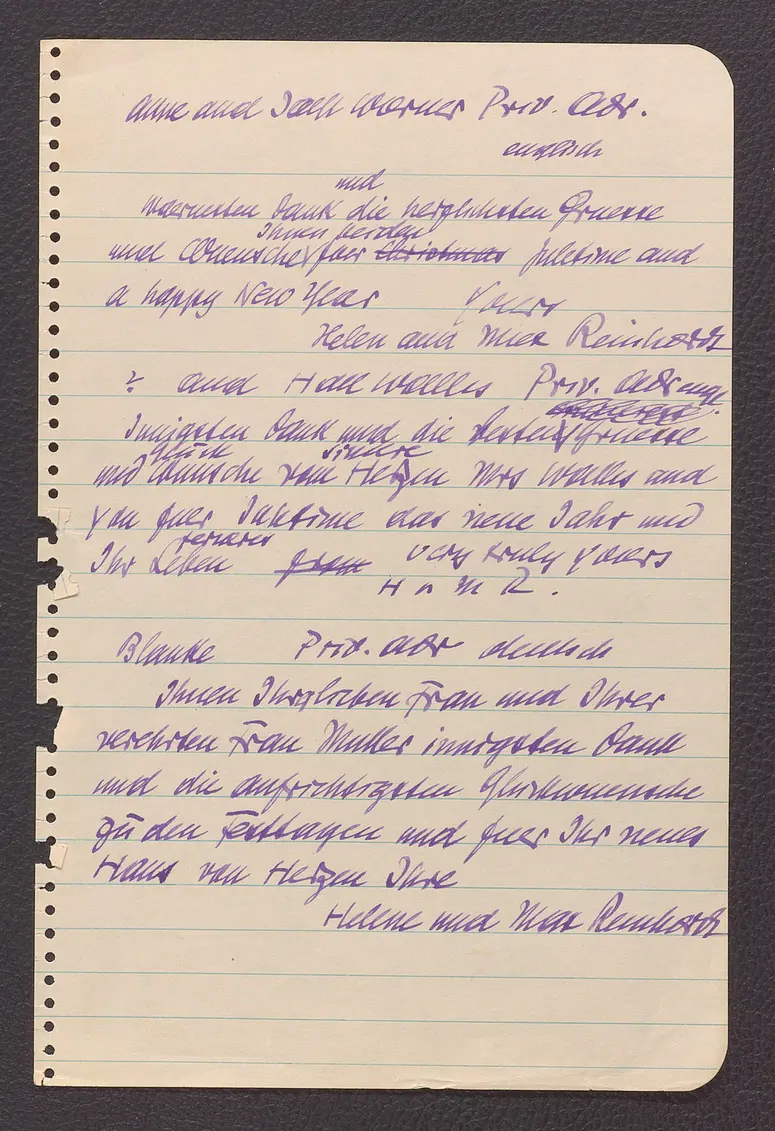 Anne and Jack Warner Priv. Adr.
englisch
und
waermsten Dank die herzlichsten Gruesse
Ihnen beiden
und Wuensche fuer Christmas Juletime and
a happy New Year Yours
Helen and Max Reinhardt
? and Hall Walles Priv. Adr engl.
Innigsten Dank und die besten Gruesse
Glück
und Wünsche von Herzen Mrs Walles and
you fuer Juletime das neue Jahr und
Ihr Leben from very truly yours
H a M R.
Blanke Priv. Adr deutsch
Ihnen Ihrer lieben Frau und Ihrer
verehrten Frau Mutter innigsten Dank
und die aufrichtigsten Glückwuensche
zu den Festtagen und fuer Ihr neues
Haus von Herzen Ihre
Helene und Max Reinhardt